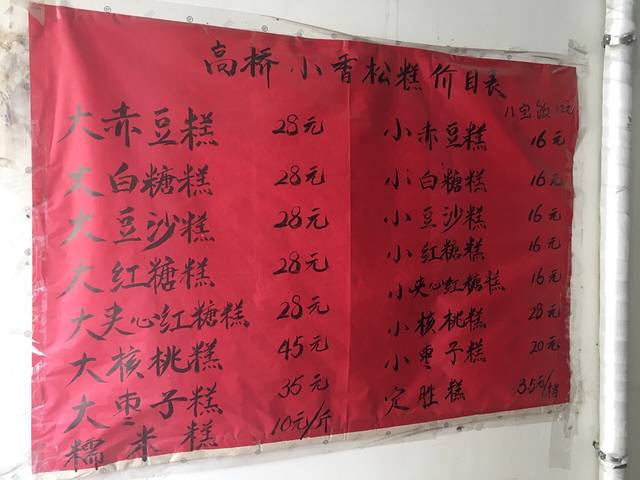 高桥小香松糕价目表
八宝饭 12元
大赤豆糕 28元
大白糖糕 28元
大豆沙糕 28元
大红糖糕 28元
大夹心红糖糕 28元
大核桃糕 45元
大枣子糕 35元
糯米糕 10元/斤
小赤豆糕 16元
小白糖糕 16元
小豆沙糕 16元
小红糖糕 16元
小夹心红糖糕 16元
小核桃糕 28元
小枣子糕 20元
定胜糕 35元/